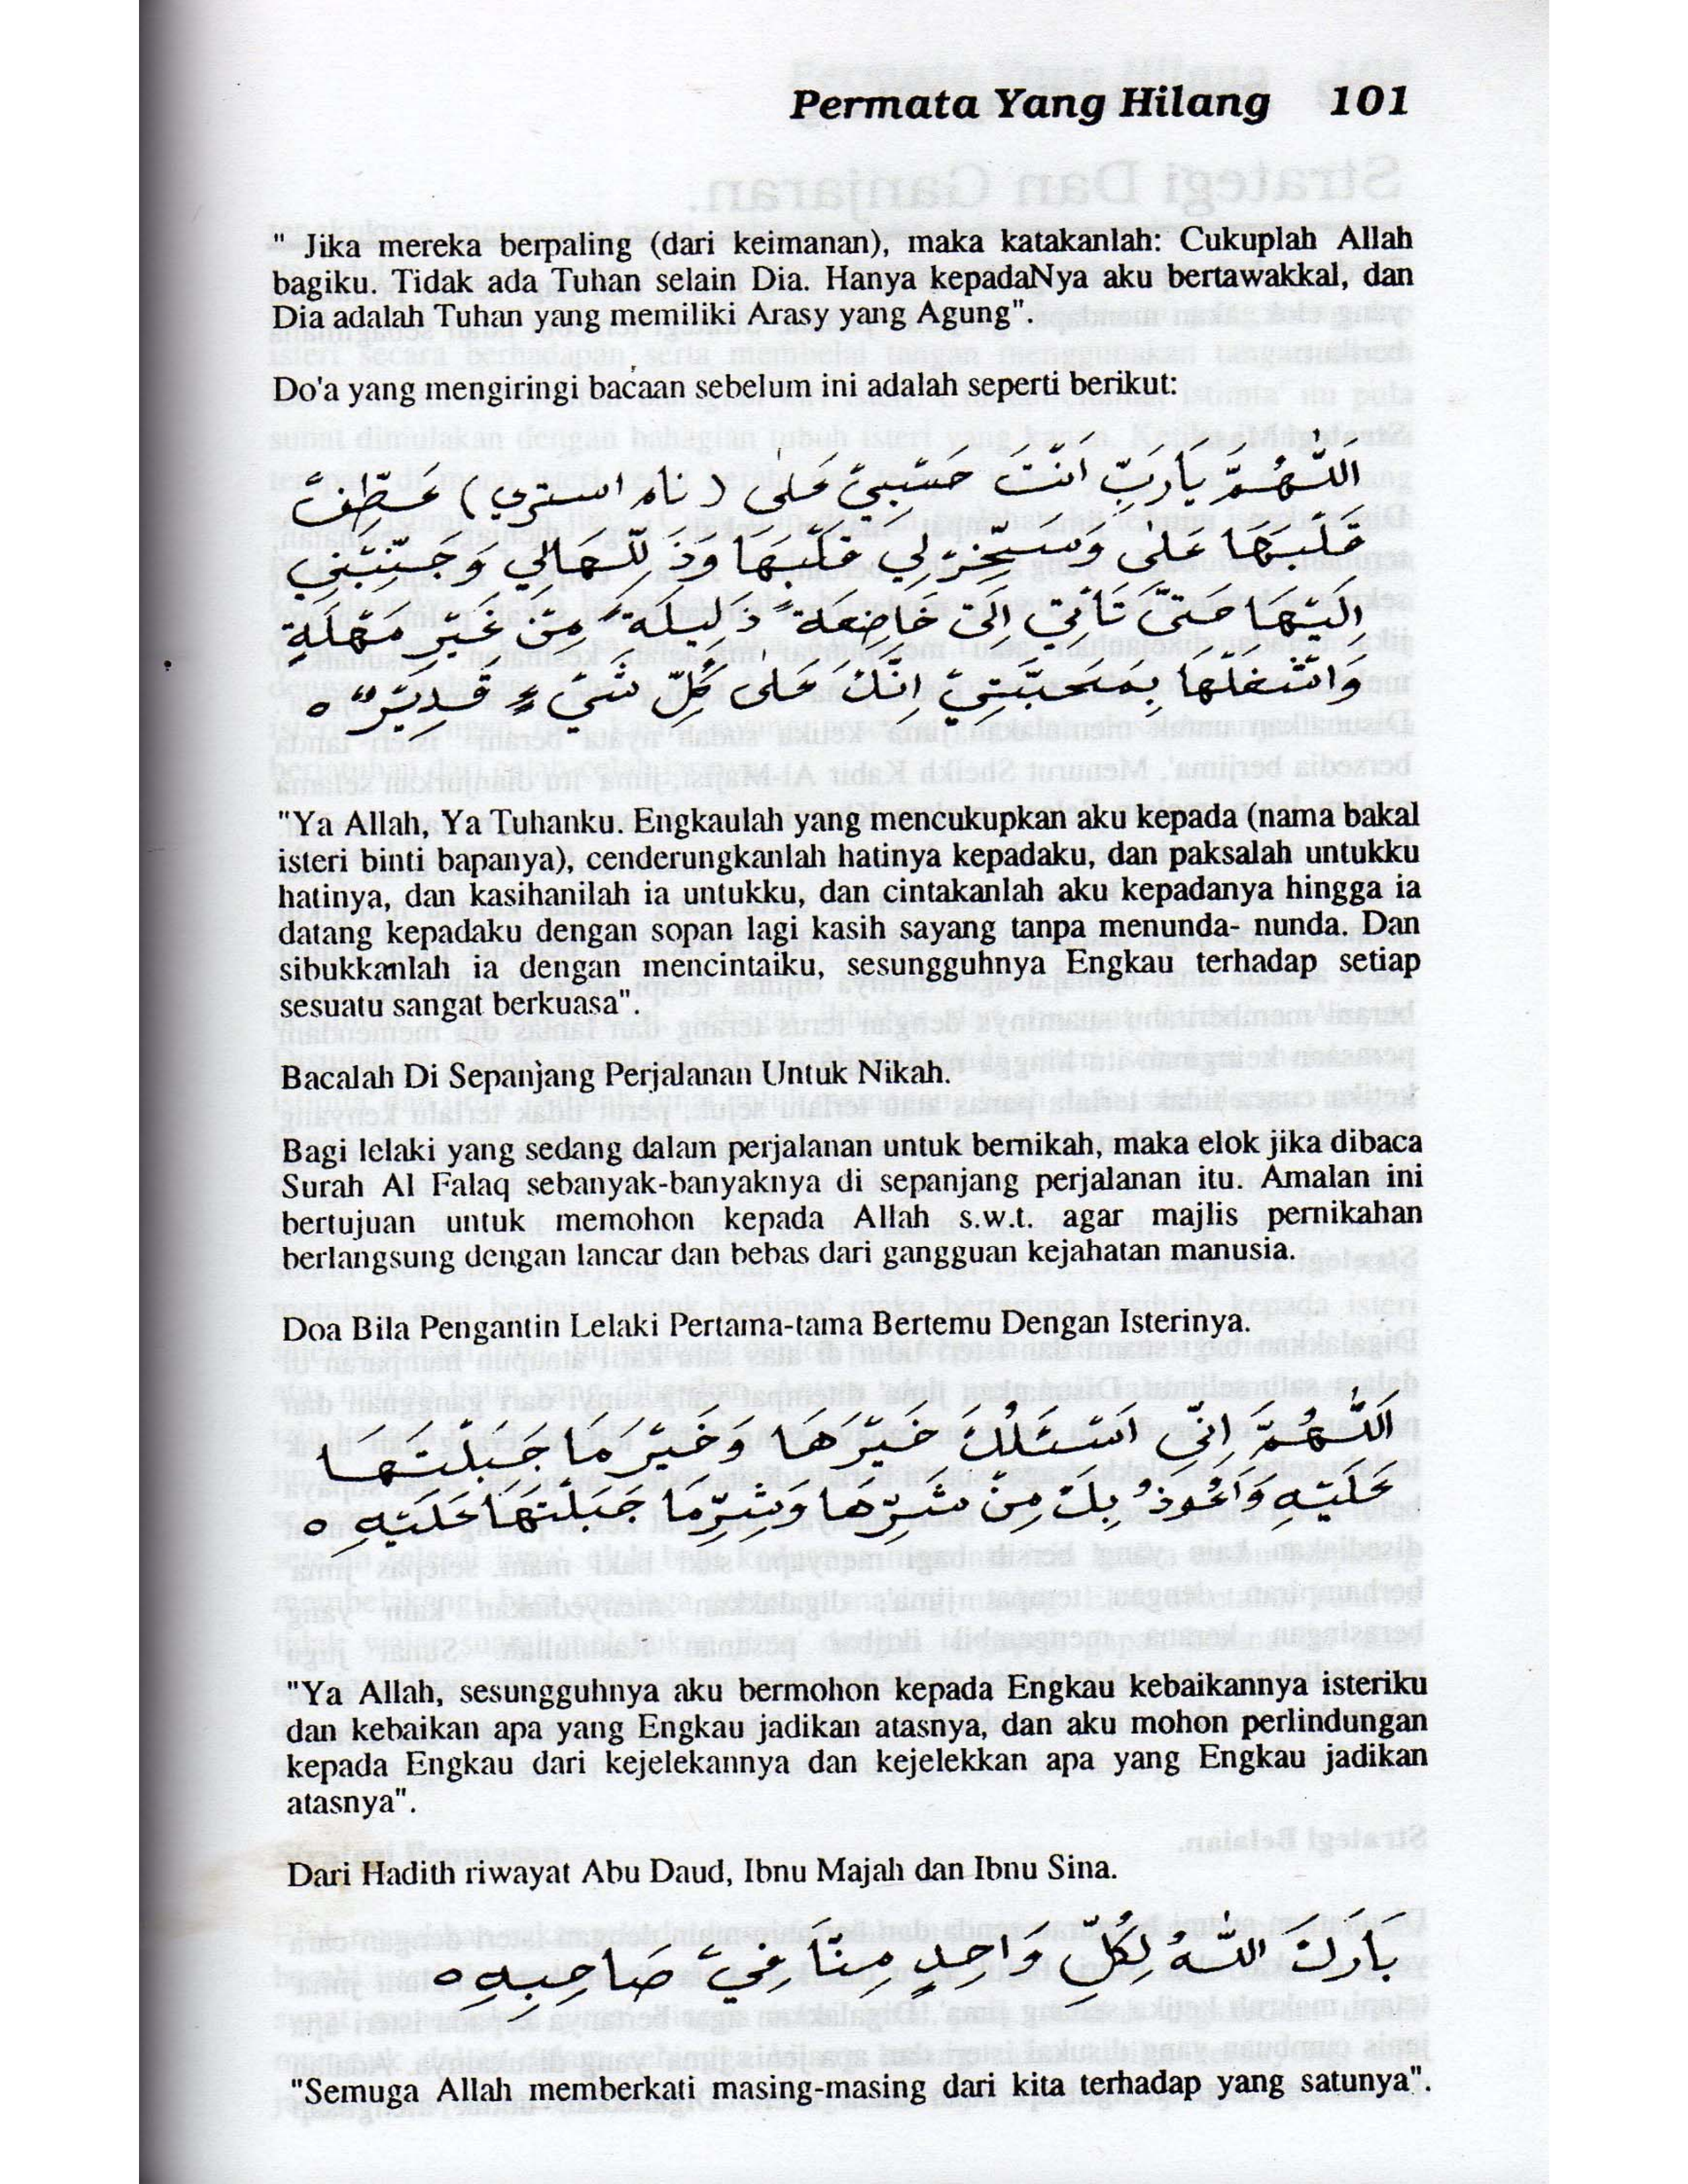 Permata Yang Hilang 101
" Jika mereka berpaling (dari keimanan), maka katakanlah: Cukuplah Allah
bagiku. Tidak ada Tuhan selain Dia. Hanya kepadaNya aku bertawakkal, dan
Dia adalah Tuhan yang memiliki Arasy yang Agung".
Do'a yang mengiringi bacaan sebelum ini adalah seperti berikut:
اَللّٰهُمَّ يَارَبِّ اَنْتَ حَسْبِيْ عَلٰى (نام استري) عَطِّفْ
قَلْبَهَا عَلٰى وَسَخِّرْ لِي قَلْبَهَا وَذَ لِّلْهَالِي وَحَبِّبْنِي
اِلَيْهَا حَتَّى تَأْتِي اِلَيَّ خَاضِعَةً ذَلِيلَةً مِنْ غَيْرِ مَهْلَةٍ
وَاشْغَلْهَا بِمَحَبَّتِيْ اِنَّكَ عَلٰى كُلِّ شَيْءٍ قَدِيْرٌ ه
"Ya Allah, Ya Tuhanku. Engkaulah yang mencukupkan aku kepada (nama bakal
isteri binti bapanya), cenderungkanlah hatinya kepadaku, dan paksalah untukku
hatinya, dan kasihanilah ia untukku, dan cintakanlah aku kepadanya hingga ia
datang kepadaku dengan sopan lagi kasih sayang tanpa menunda- nunda. Dan
sibukkanlah ia dengan mencintaiku, sesungguhnya Engkau terhadap setiap
sesuatu sangat berkuasa".
Bacalah Di Sepanjang Perjalanan Untuk Nikah.
Bagi lelaki yang sedang dalam perjalanan untuk bernikah, maka elok jika dibaca
Surah Al Falaq sebanyak-banyaknya di sepanjang perjalanan itu. Amalan ini
bertujuan untuk memohon kepada Allah s.w.t. agar majlis pernikahan
berlangsung dengan lancar dan bebas dari gangguan kejahatan manusia.
Doa Bila Pengantin Lelaki Pertama-tama Bertemu Dengan Isterinya.
اَللّٰهُمَّ اِنِّي اَسْئَلُكَ خَيْرَهَا وَخَيْرَ مَا جَبَلْتَهَا
عَلَيْهِ وَاَعُوذُ بِكَ مِنْ شَرِّهَا وَشَرِّمَا جَبَلْتَهَا عَلَيْهِ ه
"Ya Allah, sesungguhnya aku bermohon kepada Engkau kebaikannya isteriku
dan kebaikan apa yang Engkau jadikan atasnya, dan aku mohon perlindungan
kepada Engkau dari kejelekannya dan kejelekkan apa yang Engkau jadikan
atasnya".
Dari Hadith riwayat Abu Daud, Ibnu Majah dan Ibnu Sina.
بَارَكَ اللّٰهُ لِكُلِّ وَاحِدٍ مِنَّا فِيْ صَاحِبِهِ ه
"Semuga Allah memberkati masing-masing dari kita terhadap yang satunya".